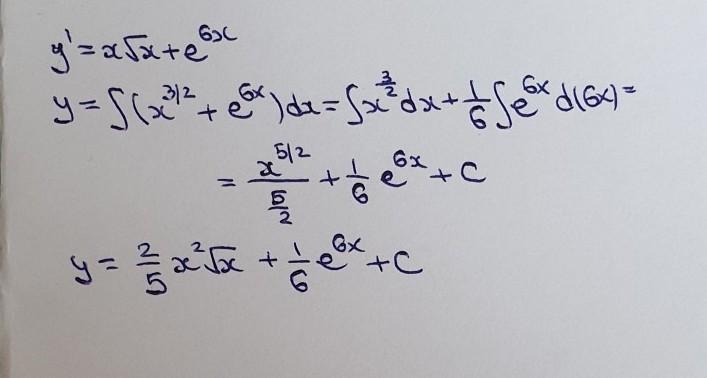 y' = x√x + e^{6x}
y = ∫(x^{3/2} + e^{6x})dx = ∫x^{3/2}dx + 1/6 ∫e^{6x} d(6x) =
= x^{5/2}/(5/2) + 1/6 e^{6x} + C
y = 2/5 x²√x + 1/6 e^{6x} + C